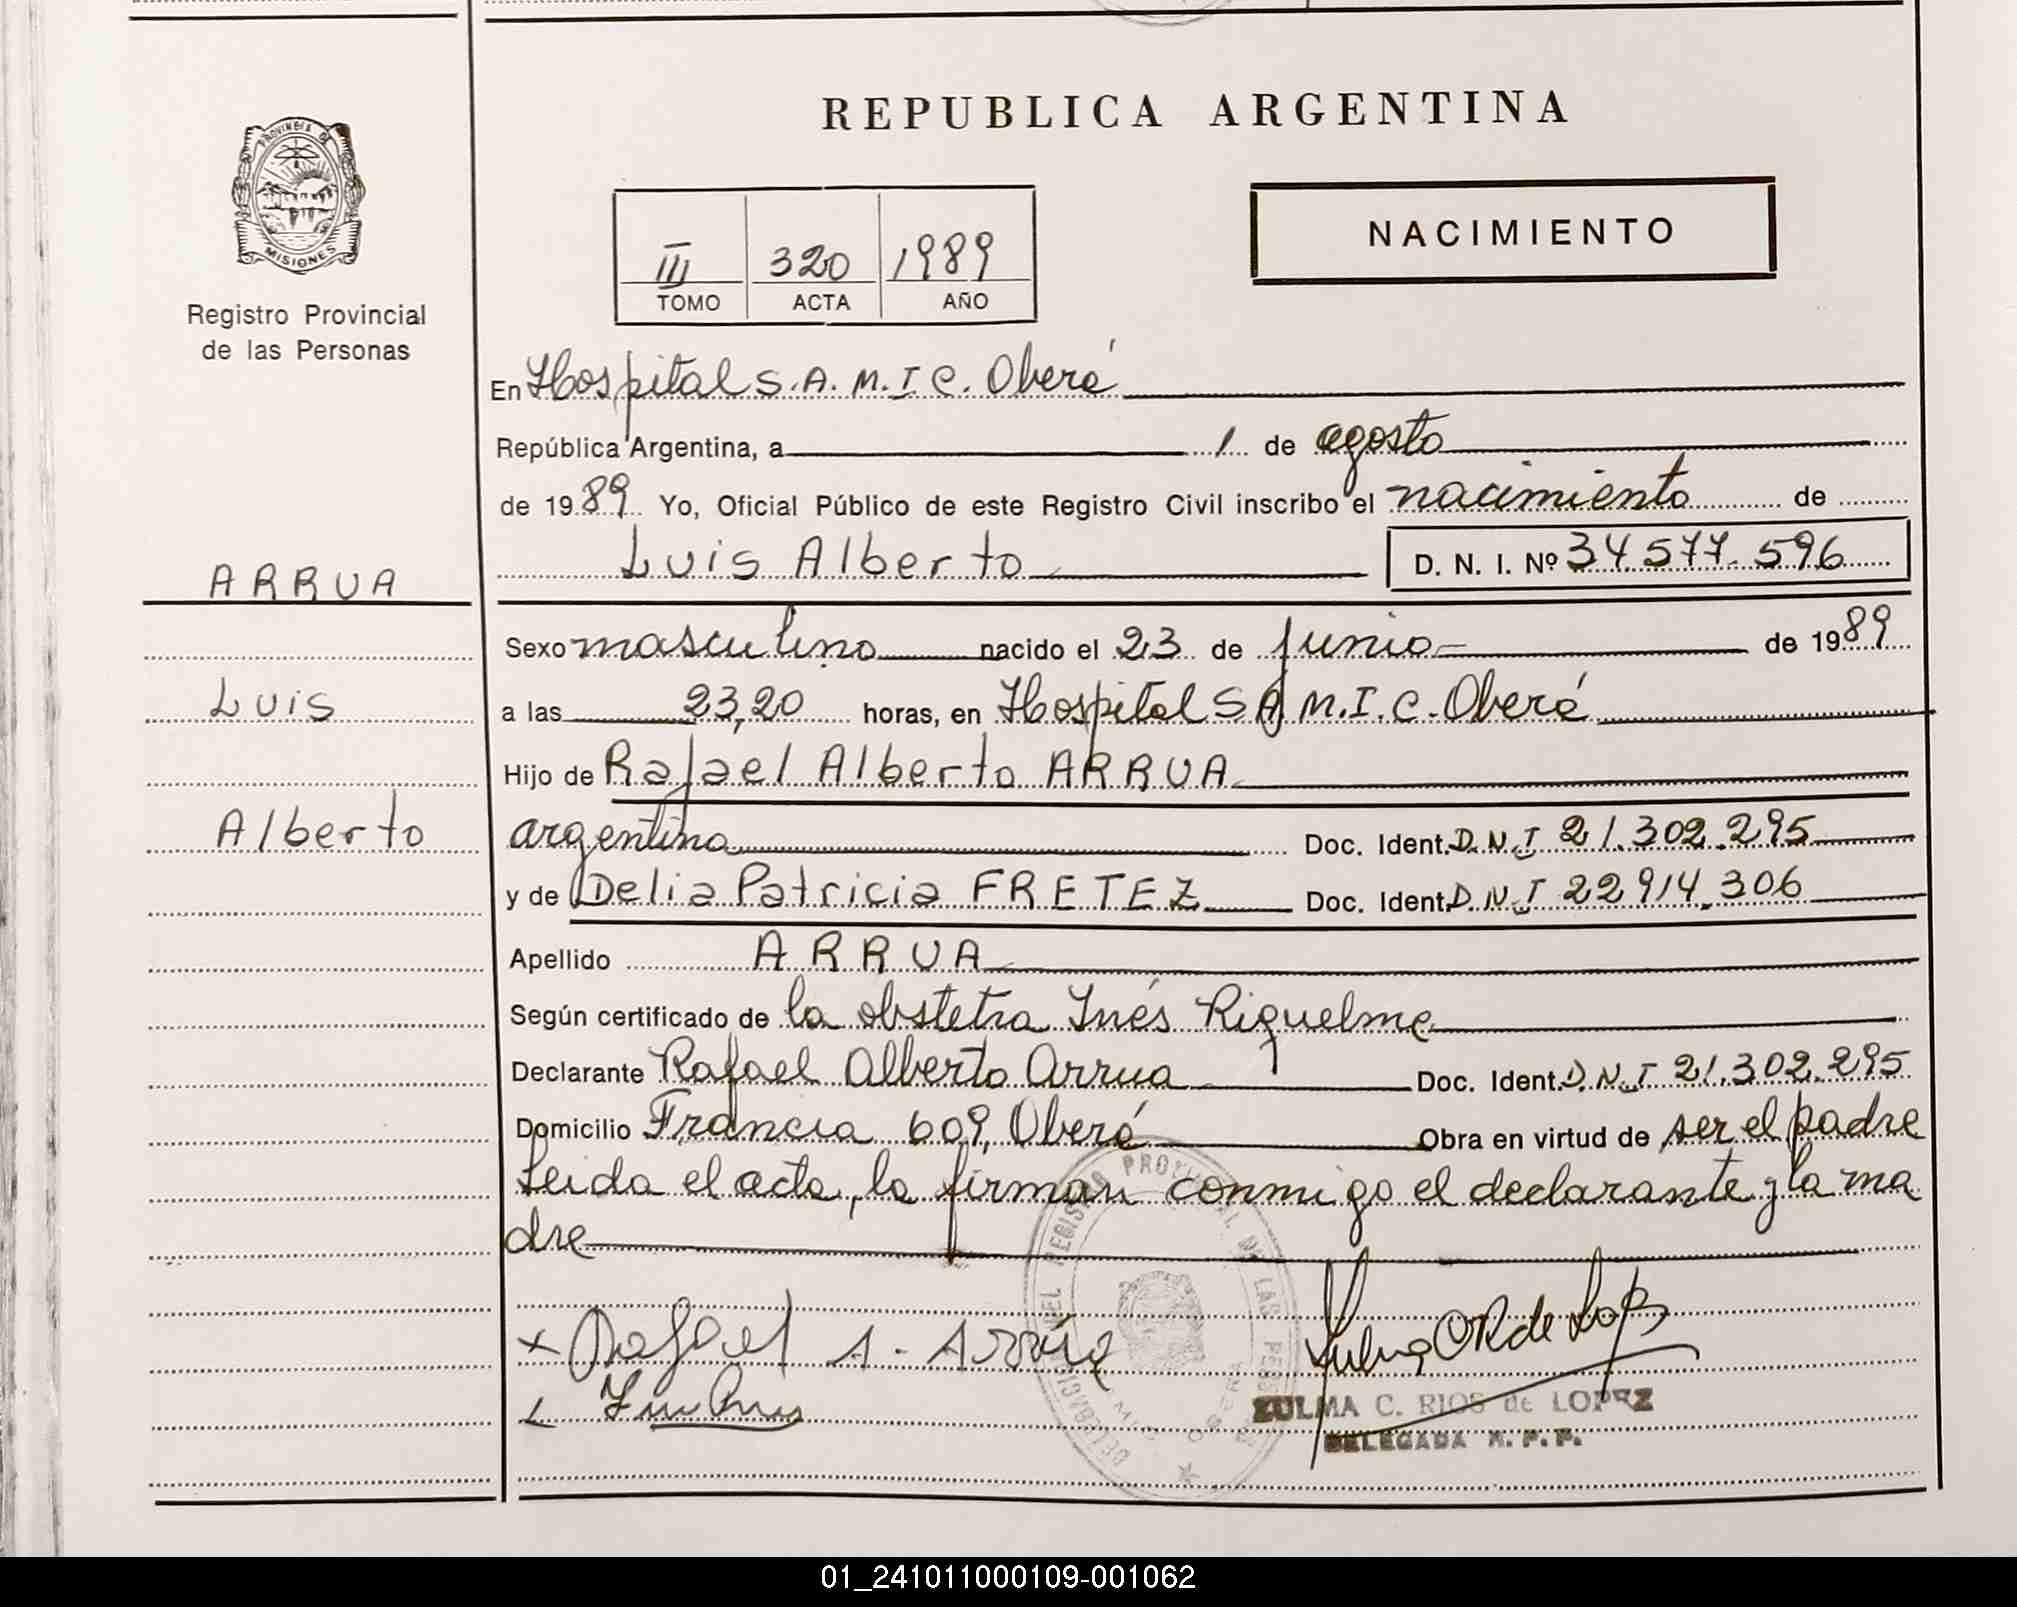 REPUBLICA ARGENTINA
PROVINCIA DE
MISIONES
Registro Provincial
de las Personas
NACIMIENTO
III 320 1989
TOMO ACTA AÑO
En Hospital S.A.M.I.C. Oberá
República Argentina, a 1 de agosto
de 1989 Yo, Oficial Público de este Registro Civil inscribo el nacimiento de
Luis Alberto D. N. I. Nº 34.577.596
ARRUA
Luis
Alberto
Sexo masculino nacido el 23 de junio de 1989
a las 23,20 horas, en Hospital S A M.I.C. Oberá
Hijo de Rafael Alberto ARRUA
argentino Doc. Ident. D.N.I 21.302.295
y de Delia Patricia FRETEZ Doc. Ident. D.N.I 22914.306
Apellido ARRUA
Según certificado de la obstetra Inés Riquelme
Declarante Rafael Alberto Arrua Doc. Ident. D.N.I 21.302.295
Domicilio Francia 609, Oberá Obra en virtud de ser el padre
Leida el acta, la firman conmigo el declarante y la ma
dre
Rafael A. Arrúa
ZULMA C. RIOS de LOPEZ
DELEGADA R.P.P.
REGISTRO PROVINCIAL DE LAS PERSONAS
OBERA
01_241011000109-001062